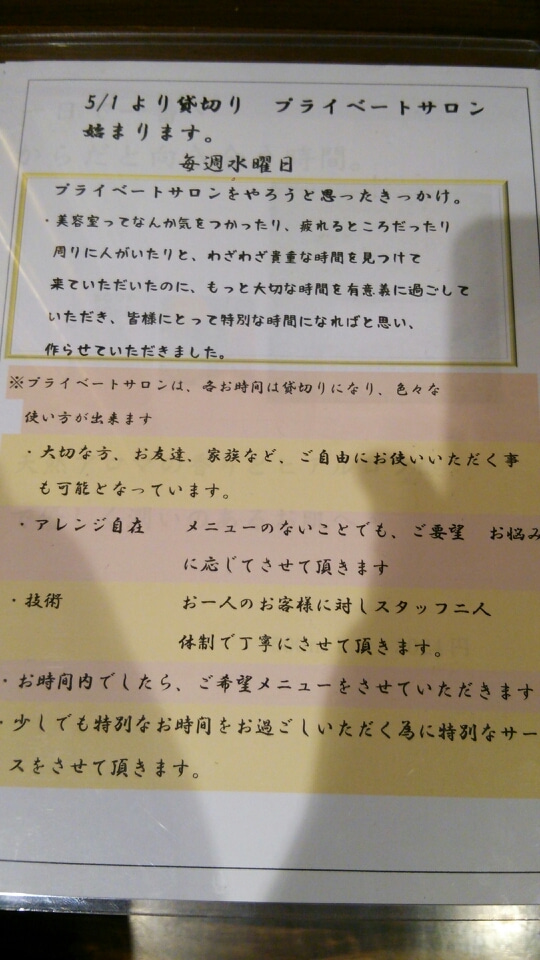 5/1より貸切り　プライベートサロン
始まります。
毎週水曜日
プライベートサロンをやろうと思ったきっかけ。
・美容室ってなんか気をつかったり、疲れるところだったり
周りに人がいたりと、わざわざ貴重な時間を見つけて
来ていただいたのに、もっと大切な時間を有意義に過ごして
いただき、皆様にとって特別な時間になればと思い、
作らせていただきました。
※プライベートサロンは、各お時間は貸切りになり、色々な
使い方が出来ます
・大切な方、お友達、家族など、ご自由にお使いいただく事
も可能となっています。
・アレンジ自在　メニューのないことでも、ご要望　お悩み
に応じてさせて頂きます
・技術　お一人のお客様に対しスタッフ二人
体制で丁寧にさせて頂きます。
・お時間内でしたら、ご希望メニューをさせていただきます
・少しでも特別なお時間をお過ごしいただく為に特別なサー
スをさせて頂きます。